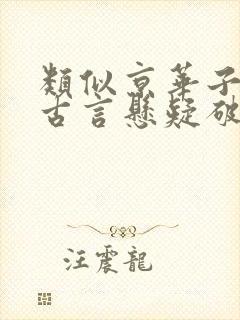 類似京華子
古言懸疑破
汪震龍